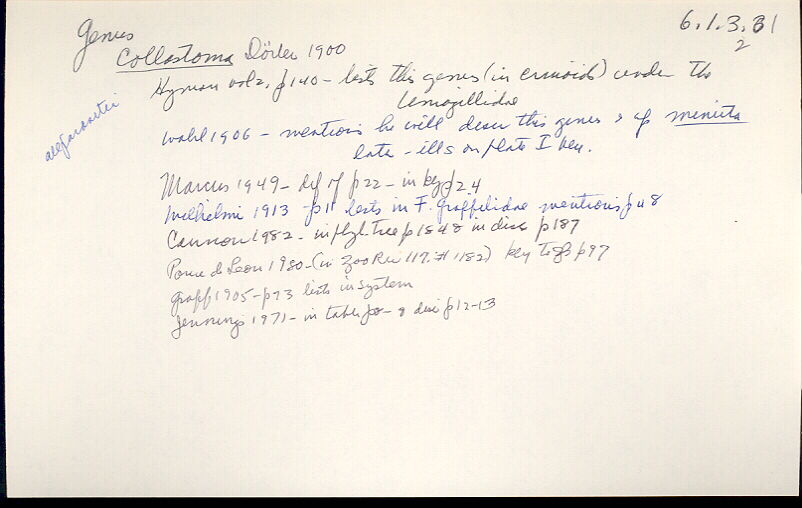 Genus
6.1.3.31
2
Collastoma Dörler 1900
Hyman vol 2, p140 - lists this genus (in crinoids) under the
Umagillidae
all parasitic
Wahl 1906 - mentions he will descr this genus & sp minuta
later - ills on plate I here.
Marcus 1949 - def of p22 - in key p24
Wilhelmi 1913 - p11 lists in F. Graffillidae mentions p48
Cannon 1982 - in phyl. tree p184 & in disc p187
Ponce de Leon 1980 - (in Zoo Rec 117: # 1182) key to gs p97
Graff 1905 - p73 lists in system
Jennings 1971 - in table & disc p12-13